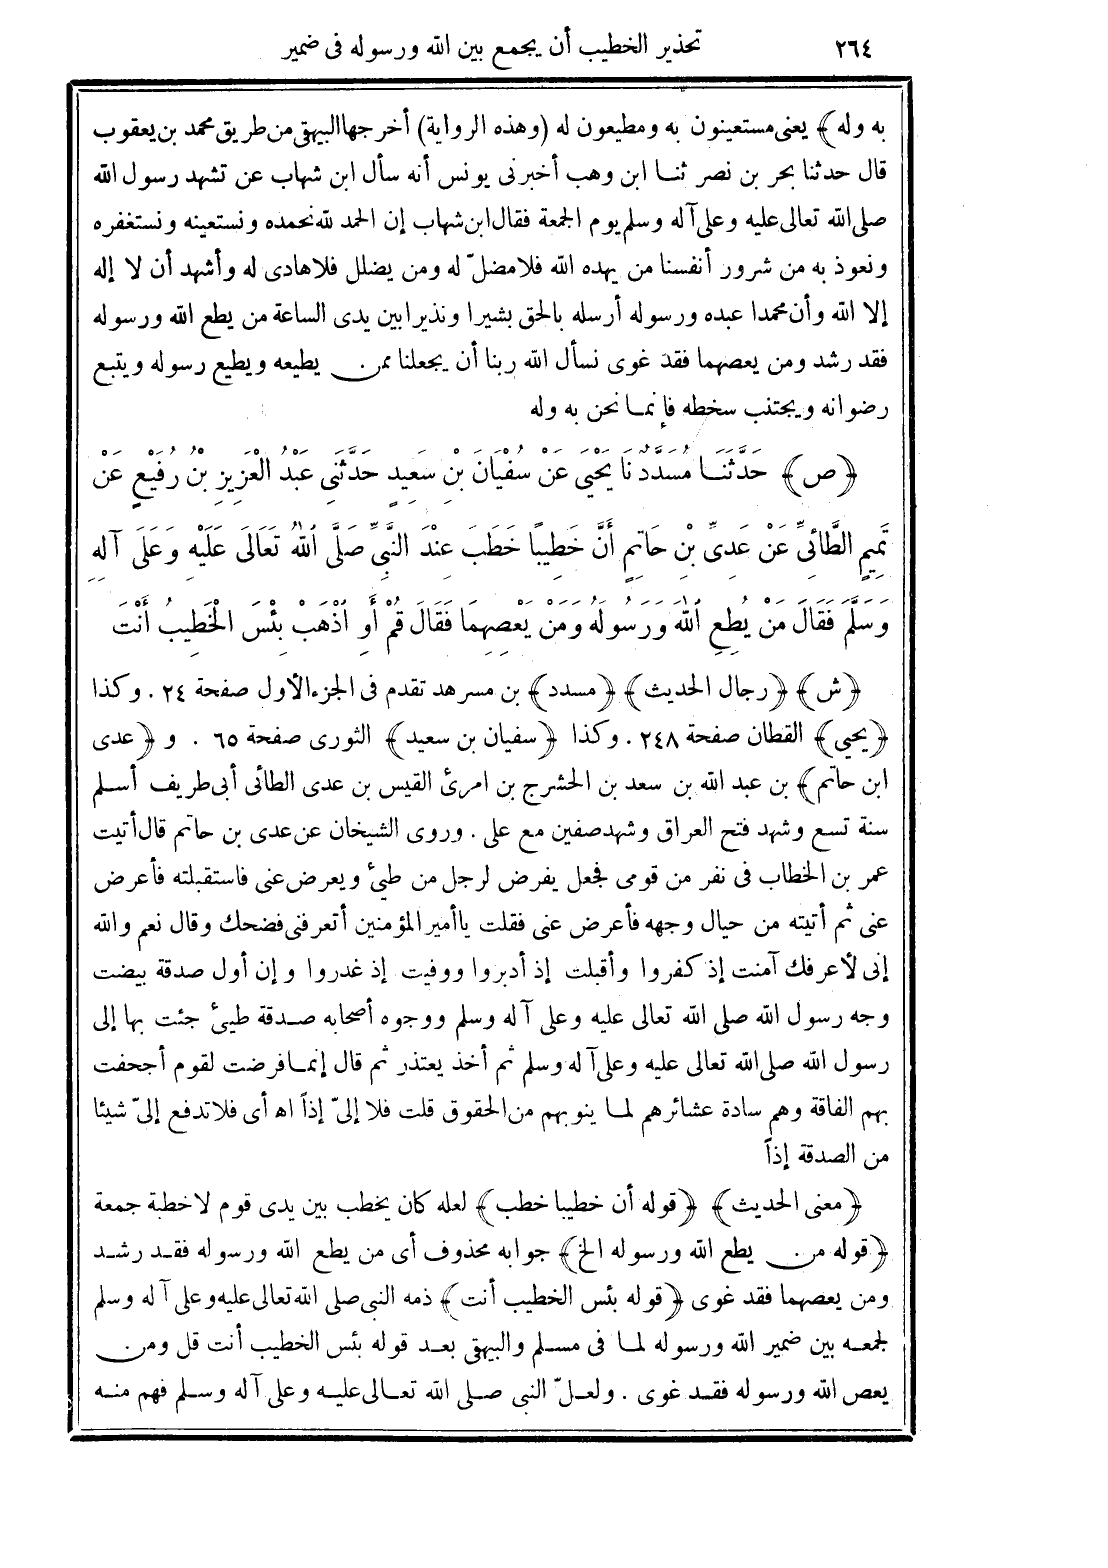 ٢٦٤ تحذير الخطيب أن يجمع بين الله ورسوله فى ضمير
به وله﴾ يعنى مستعينون به ومطيعون له (وهذه الرواية) أخرجها البيهقى من طريق محمد بن يعقوب
قال حدثنا بحر بن نصر ثنا ابن وهب أخبرنى يونس أنه سأل ابن شهاب عن تشهد رسول الله
صلى الله تعالى عليه وعلى آله وسلم يوم الجمعة فقال ابن شهاب إن الحمد لله نحمده ونستعينه ونستغفره
ونعوذ به من شرور أنفسنا من يهده الله فلا مضلّ له ومن يضلل فلا هادى له وأشهد أن لا إله
إلا الله وأن محمدا عبده ورسوله أرسله بالحق بشيرا ونذيرا بين يدى الساعة من يطع الله ورسوله
فقد رشد ومن يعصهما فقد غوى نسأل الله ربنا أن يجعلنا ممن يطيعه ويطيع رسوله ويتبع
رضوانه ويجتنب سخطه فإنما نحن به وله
﴿ص﴾ حَدَّثَنَا مُسَدَّدٌ نَا يَحْيَى عَنْ سُفْيَانَ بْنِ سَعِيدٍ حَدَّثَنِى عَبْدُ الْعَزِيزِ بْنُ رُفَيْعٍ عَنْ
تَمِيمٍ الطَّائِىِّ عَنْ عَدِىِّ بْنِ حَاتِمٍ أَنَّ خَطِيبًا خَطَبَ عِنْدَ النَّبِىِّ صَلَّى اللهُ تَعَالَى عَلَيْهِ وَعَلَى آلِهِ
وَسَلَّمَ فَقَالَ مَنْ يُطِعِ اللهَ وَرَسُولَهُ وَمَنْ يَعْصِهِمَا فَقَالَ قُمْ أَوِ اذْهَبْ بِئْسَ الْخَطِيبُ أَنْتَ
﴿ش﴾ ﴿رجال الحديث﴾ ﴿مسدد﴾ بن مسرهد تقدم فى الجزء الأول صفحة ٢٤ . وكذا
﴿يحيى﴾ القطان صفحة ٢٤٨ . وكذا ﴿سفيان بن سعيد﴾ الثورى صفحة ٦٥ . و ﴿عدى
ابن حاتم﴾ بن عبد الله بن سعد بن الحشرج بن امرئ القيس بن عدى الطائى أبى طريف أسلم
سنة تسع وشهد فتح العراق وشهد صفين مع على . وروى الشيخان عن عدى بن حاتم قال أتيت
عمر بن الخطاب فى نفر من قومى فجعل يفرض لرجل من طيئ ويعرض عنى فاستقبلته فأعرض
عنى ثم أتيته من حيال وجهه فأعرض عنى فقلت يا أمير المؤمنين أتعرفنى فضحك وقال نعم والله
إنى لأعرفك آمنت إذ كفروا وأقبلت إذ أدبروا ووفيت إذ غدروا وإن أول صدقة بيضت
وجه رسول الله صلى الله تعالى عليه وعلى آله وسلم ووجوه أصحابه صدقة طيئ جئت بها إلى
رسول الله صلى الله تعالى عليه وعلى آله وسلم ثم أخذ يعتذر ثم قال إنما فرضت لقوم أجحفت
بهم الفاقة وهم سادة عشائرهم لما ينوبهم من الحقوق قلت فلا إلىّ إذاً اه أى فلا تدفع إلىّ شيئا
من الصدقة إذاً
﴿معنى الحديث﴾ ﴿قوله أن خطيبا خطب﴾ لعله كان يخطب بين يدى قوم لا خطبة جمعة
﴿قوله من يطع الله ورسوله الخ﴾ جوابه محذوف أى من يطع الله ورسوله فقد رشد
ومن يعصهما فقد غوى ﴿قوله بئس الخطيب أنت﴾ ذمه النبى صلى الله تعالى عليه وعلى آله وسلم
لجمعه بين ضمير الله ورسوله لما فى مسلم والبيهقى بعد قوله بئس الخطيب أنت قل ومن
يعص الله ورسوله فقد غوى . ولعلّ النبى صلى الله تعالى عليه وعلى آله وسلم فهم منه